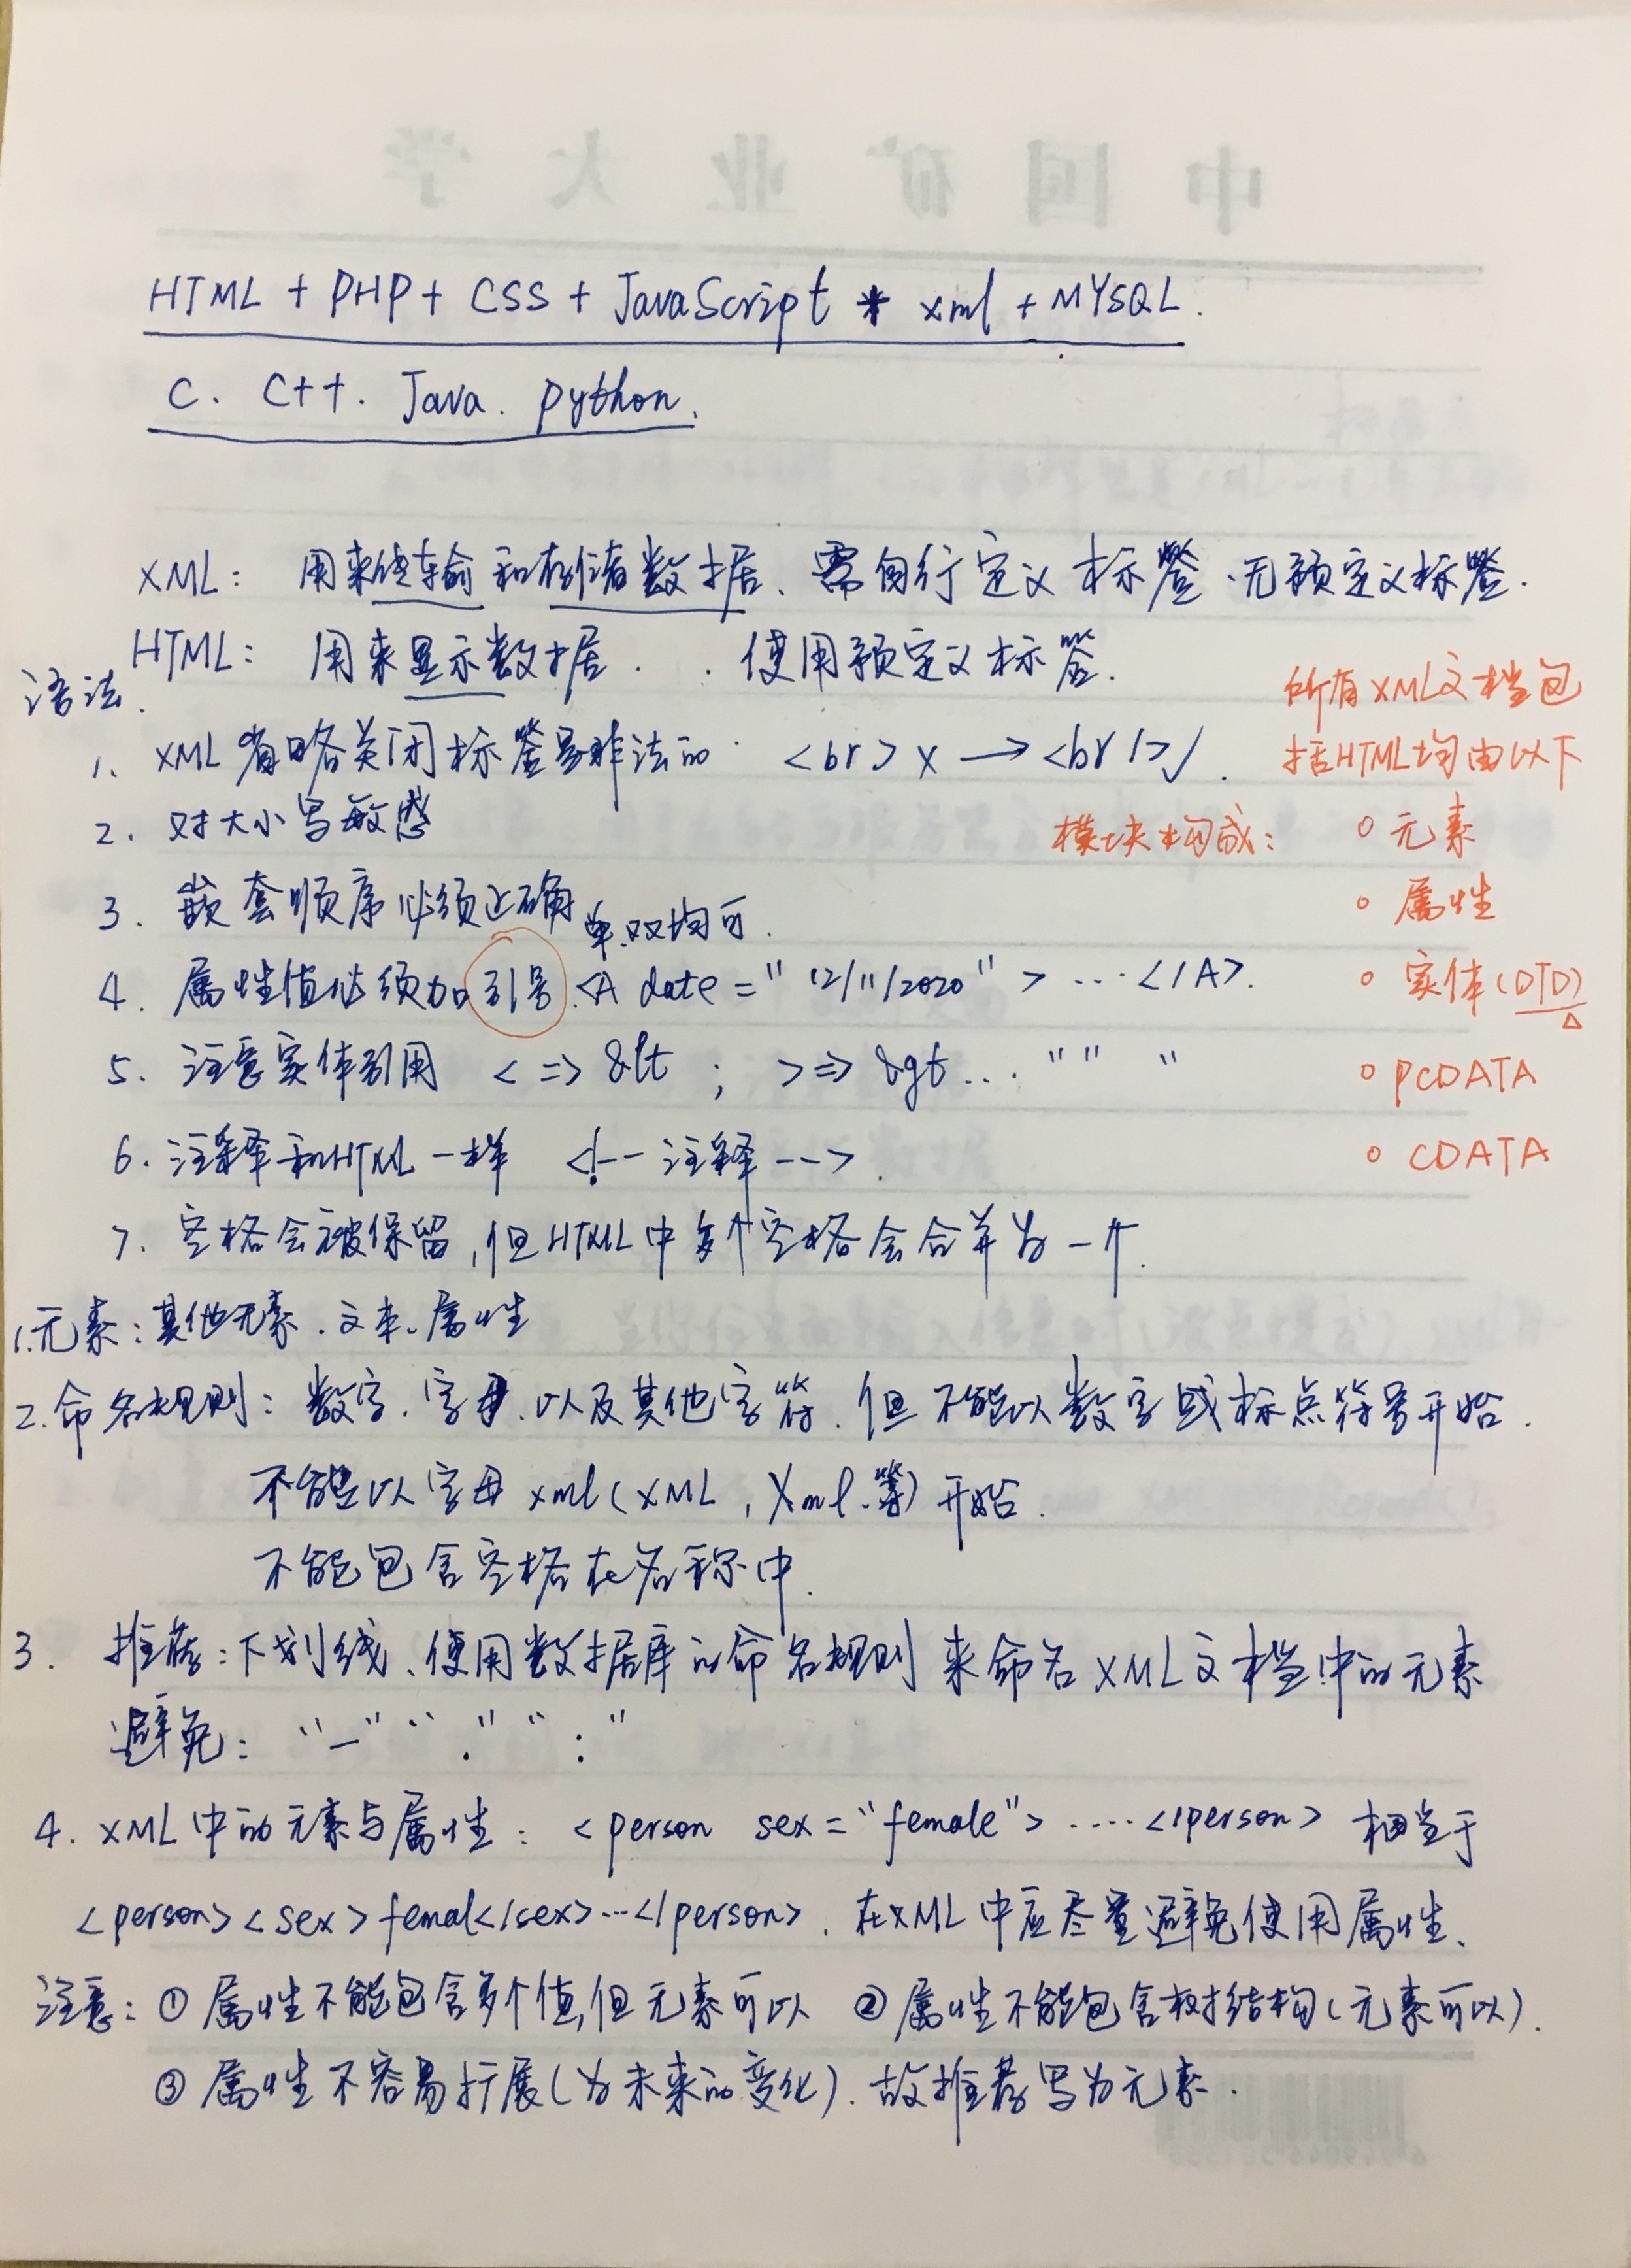 中国矿业大学
HTML + PHP + CSS + JavaScript * xml + MYSQL.
C. C++. Java. python.
XML: 用来传输和存储数据、需自行定义标签.无预定义标签.
HTML: 用来显示数据. . 使用预定义标签.
语法.
1、XML省略关闭标签是非法的. <br> x → <br /> √.
2. 对大小写敏感
3. 嵌套顺序必须正确
单.双均可.
4. 属性值必须加引号.<A date = "12/11/2020" > ... </A>.
5. 注意实体引用 < => &lt ; > => &gt ... " " "
6. 注释和HTML一样 <!-- 注释 -->.
7. 空格会被保留,但HTML中多个空格会合并为一个.
所有XML文档包
括HTML均由以下
模块构成: ○ 元素
○ 属性
○ 实体(DTD)
△
○ PCDATA
○ CDATA
1.元素:其他元素.文本、属性
2.命名规则: 数字.字母.以及其他字符.但不能以数字或标点符号开始.
不能以字母xml(XML,Xml.等)开始.
不能包含空格在名称中.
3. 推荐:下划线、使用数据库的命名规则来命名XML文档中的元素
避免: "-" "." ":"
4. XML中的元素与属性: <person sex = "female"> .... </person> 相当于
<person><sex>femal</sex>...</person>. 在XML中应尽量避免使用属性.
注意: ① 属性不能包含多个值,但元素可以 ② 属性不能包含树结构(元素可以).
③ 属性不容易扩展(为未来的变化).故推荐写为元素.